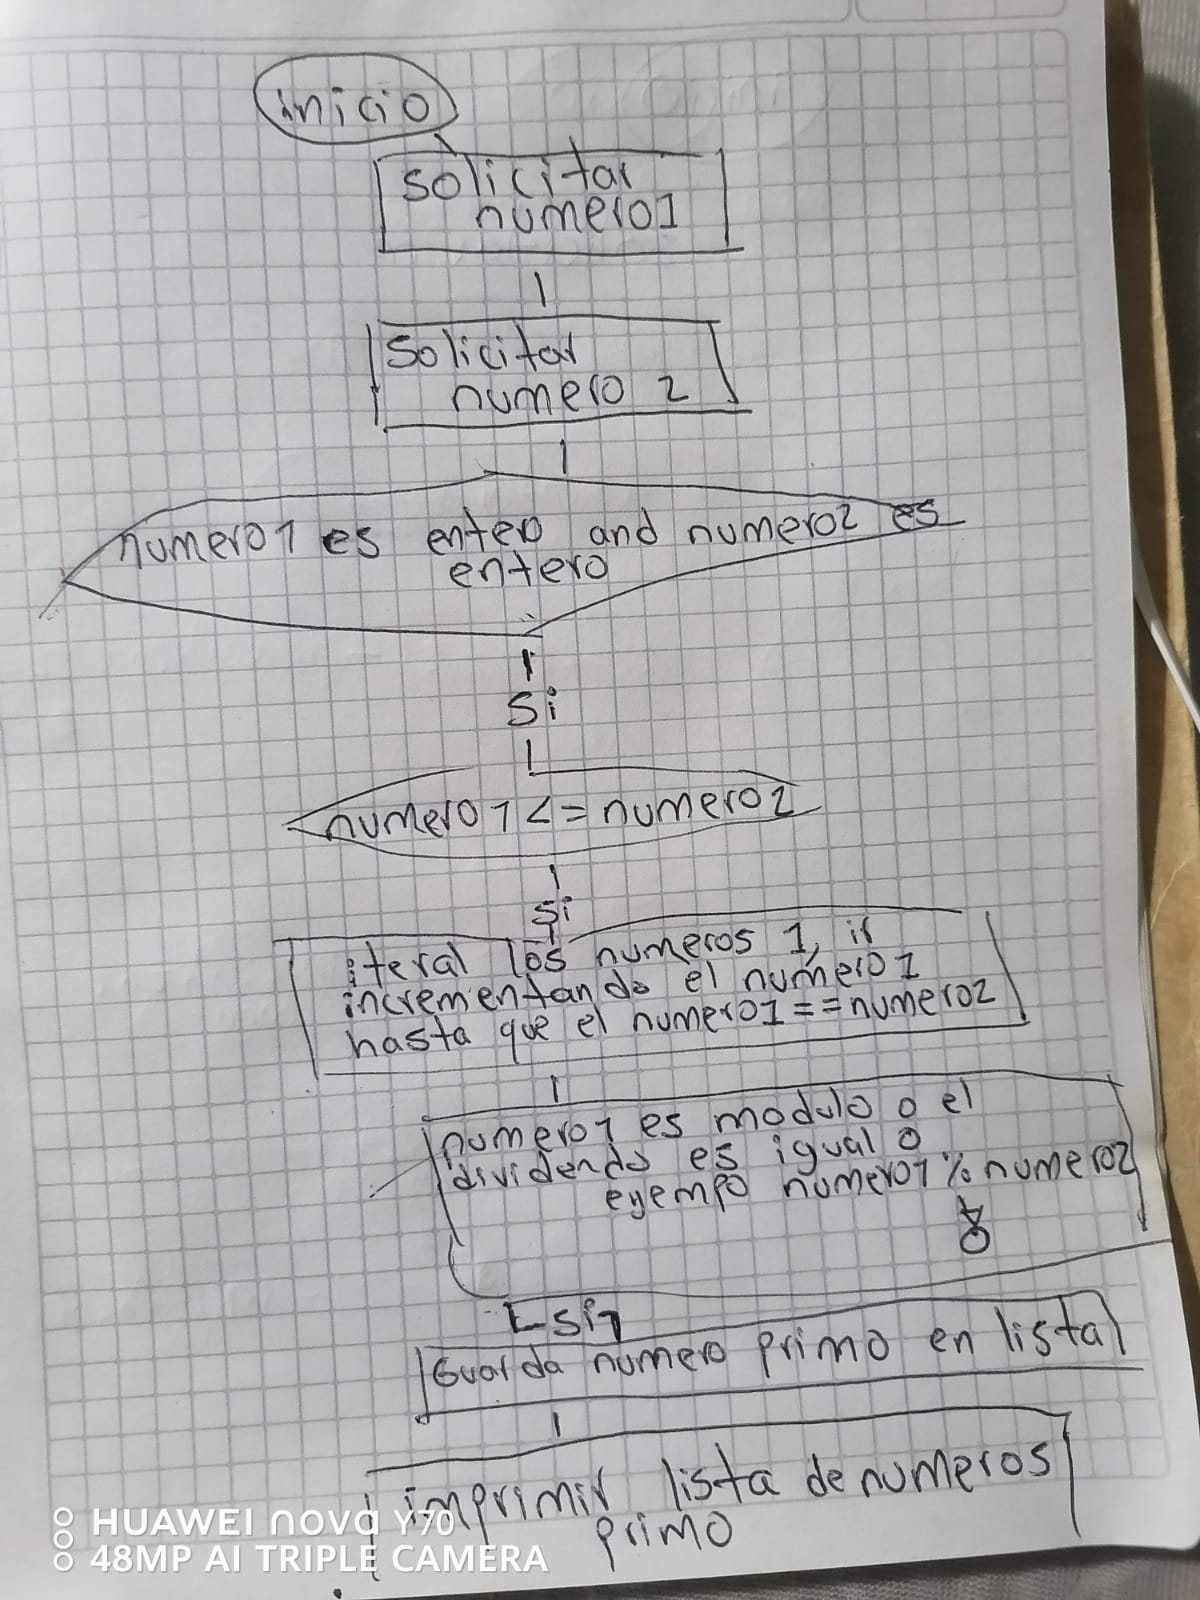 inicio
solicitar
numero1
solicitar
numero 2
numero1 es entero and numero2 es
entero
Si
numero1<=numero2
Si
iteral los numeros 1, ir
incrementando el numero1
hasta que el numero1==numero2
numero1 es modulo o el
dividendo es igual 0
ejempo numero1 % numero2
Si
Guarda numero primo en lista
imprimir lista de numeros
primo
HUAWEI nova Y70
48MP AI TRIPLE CAMERA